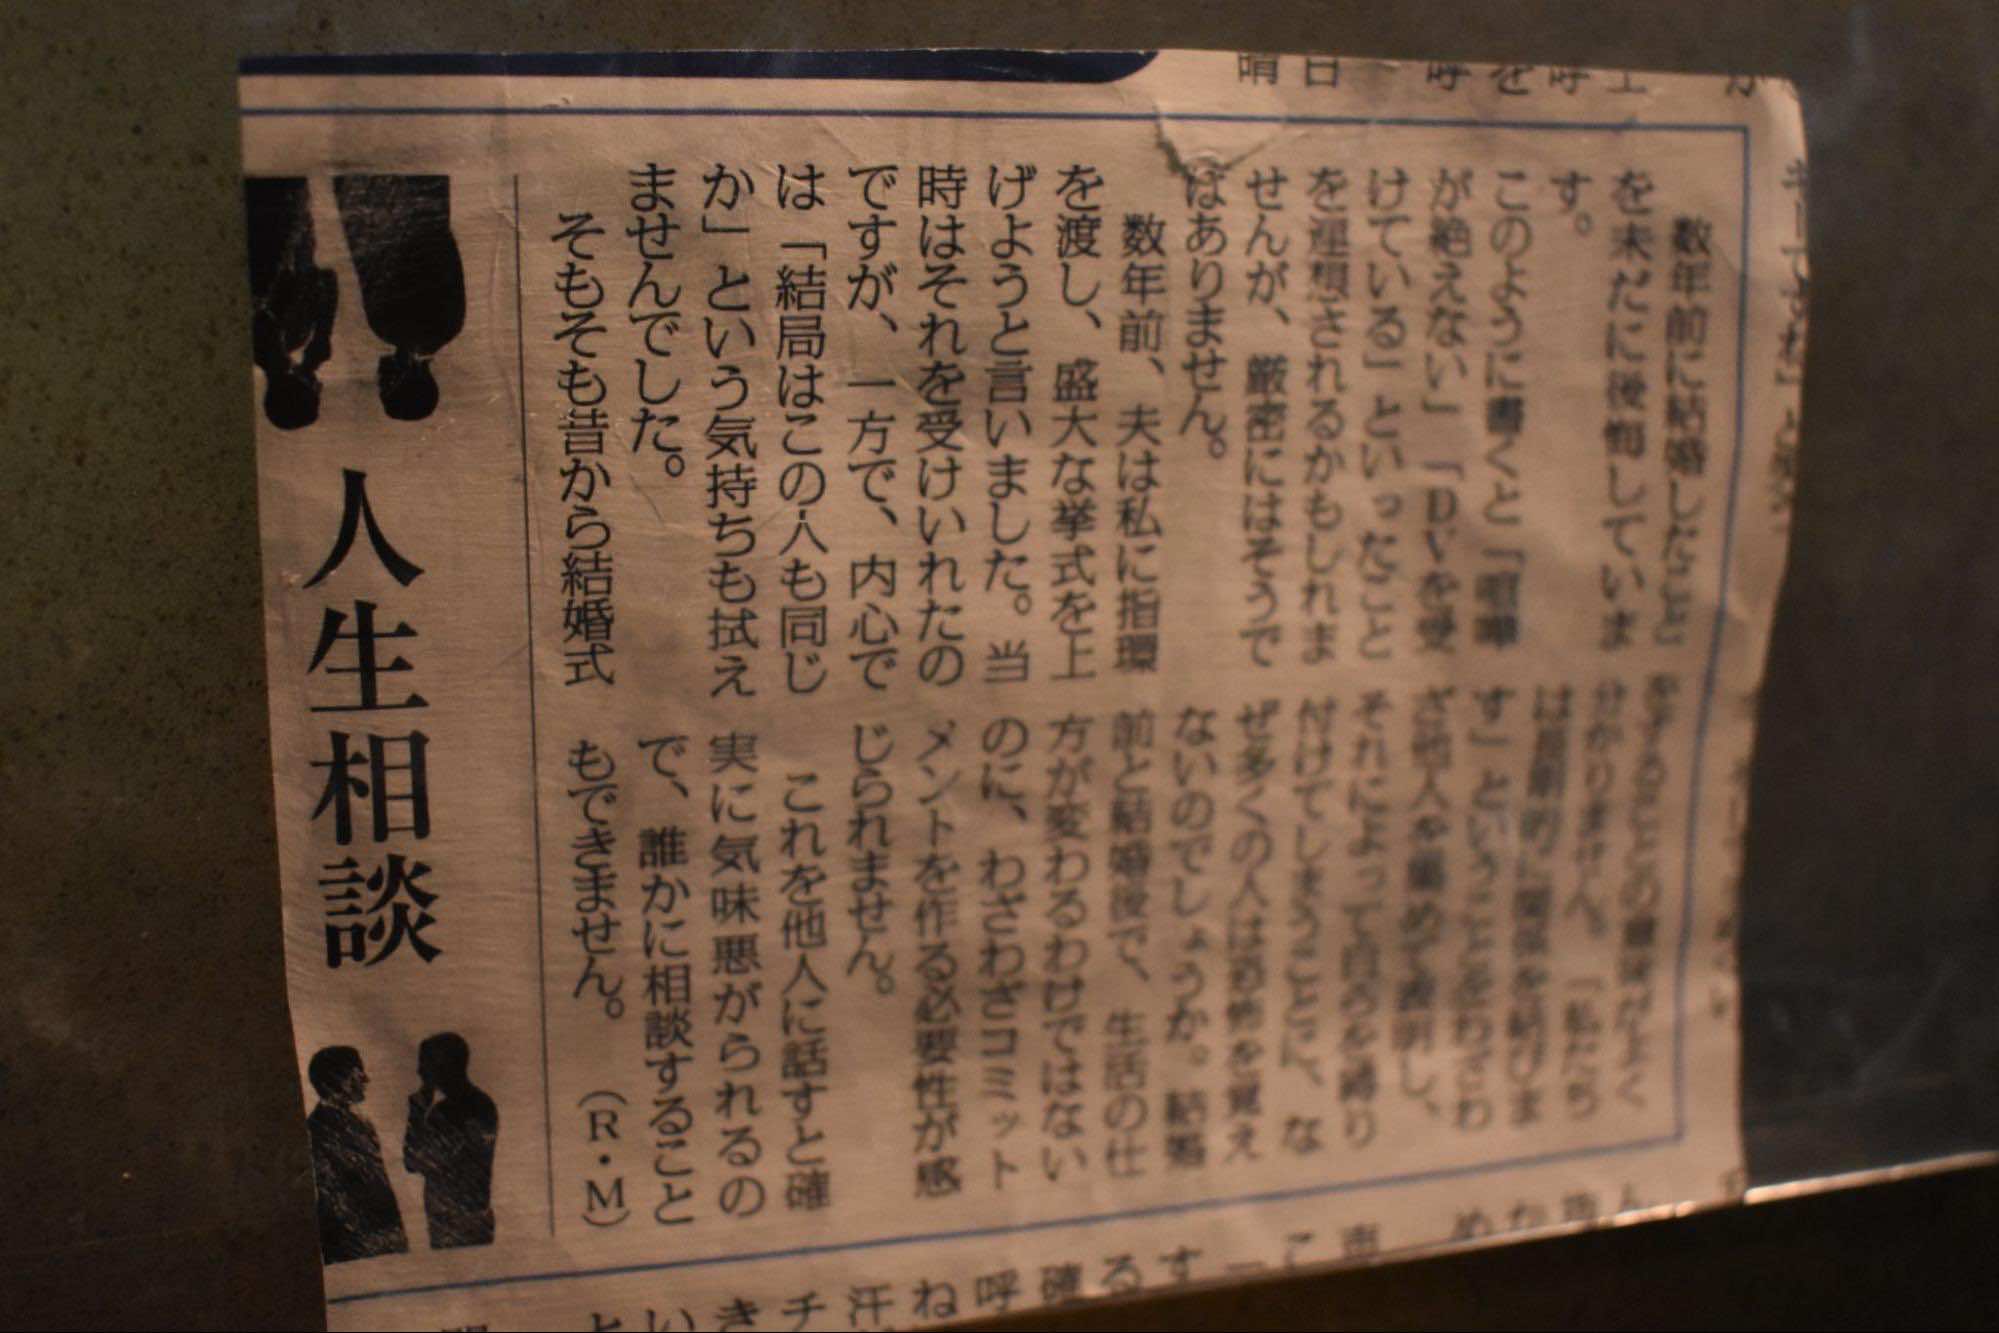 人生相談
数年前に結婚したこと
を未だに後悔していま
す。
このように書くと「喧嘩
が絶えない」「DVを受
けている」といったこと
を連想されるかもしれま
せんが、厳密にはそうで
はありません。
数年前、夫は私に指環
を渡し、盛大な挙式を上
げようと言いました。当
時はそれを受けいれたの
ですが、一方で、内心で
は「結局はこの人も同じ
か」という気持ちも拭え
ませんでした。
そもそも昔から結婚式
をすることの意味がよく
分かりません。「私たち
は排他的に関係を結びま
す」ということをわざわ
ざ他人を集めて表明し、
それによって自らを縛り
付けてしまうことに、な
ぜ多くの人は恐怖を覚え
ないのでしょうか。結婚
前と結婚後で、生活の仕
方が変わるわけではない
のに、わざわざコミット
メントを作る必要性が感
じられません。
これを他人に話すと確
実に気味悪がられるの
で、誰かに相談すること
もできません。（R・M）